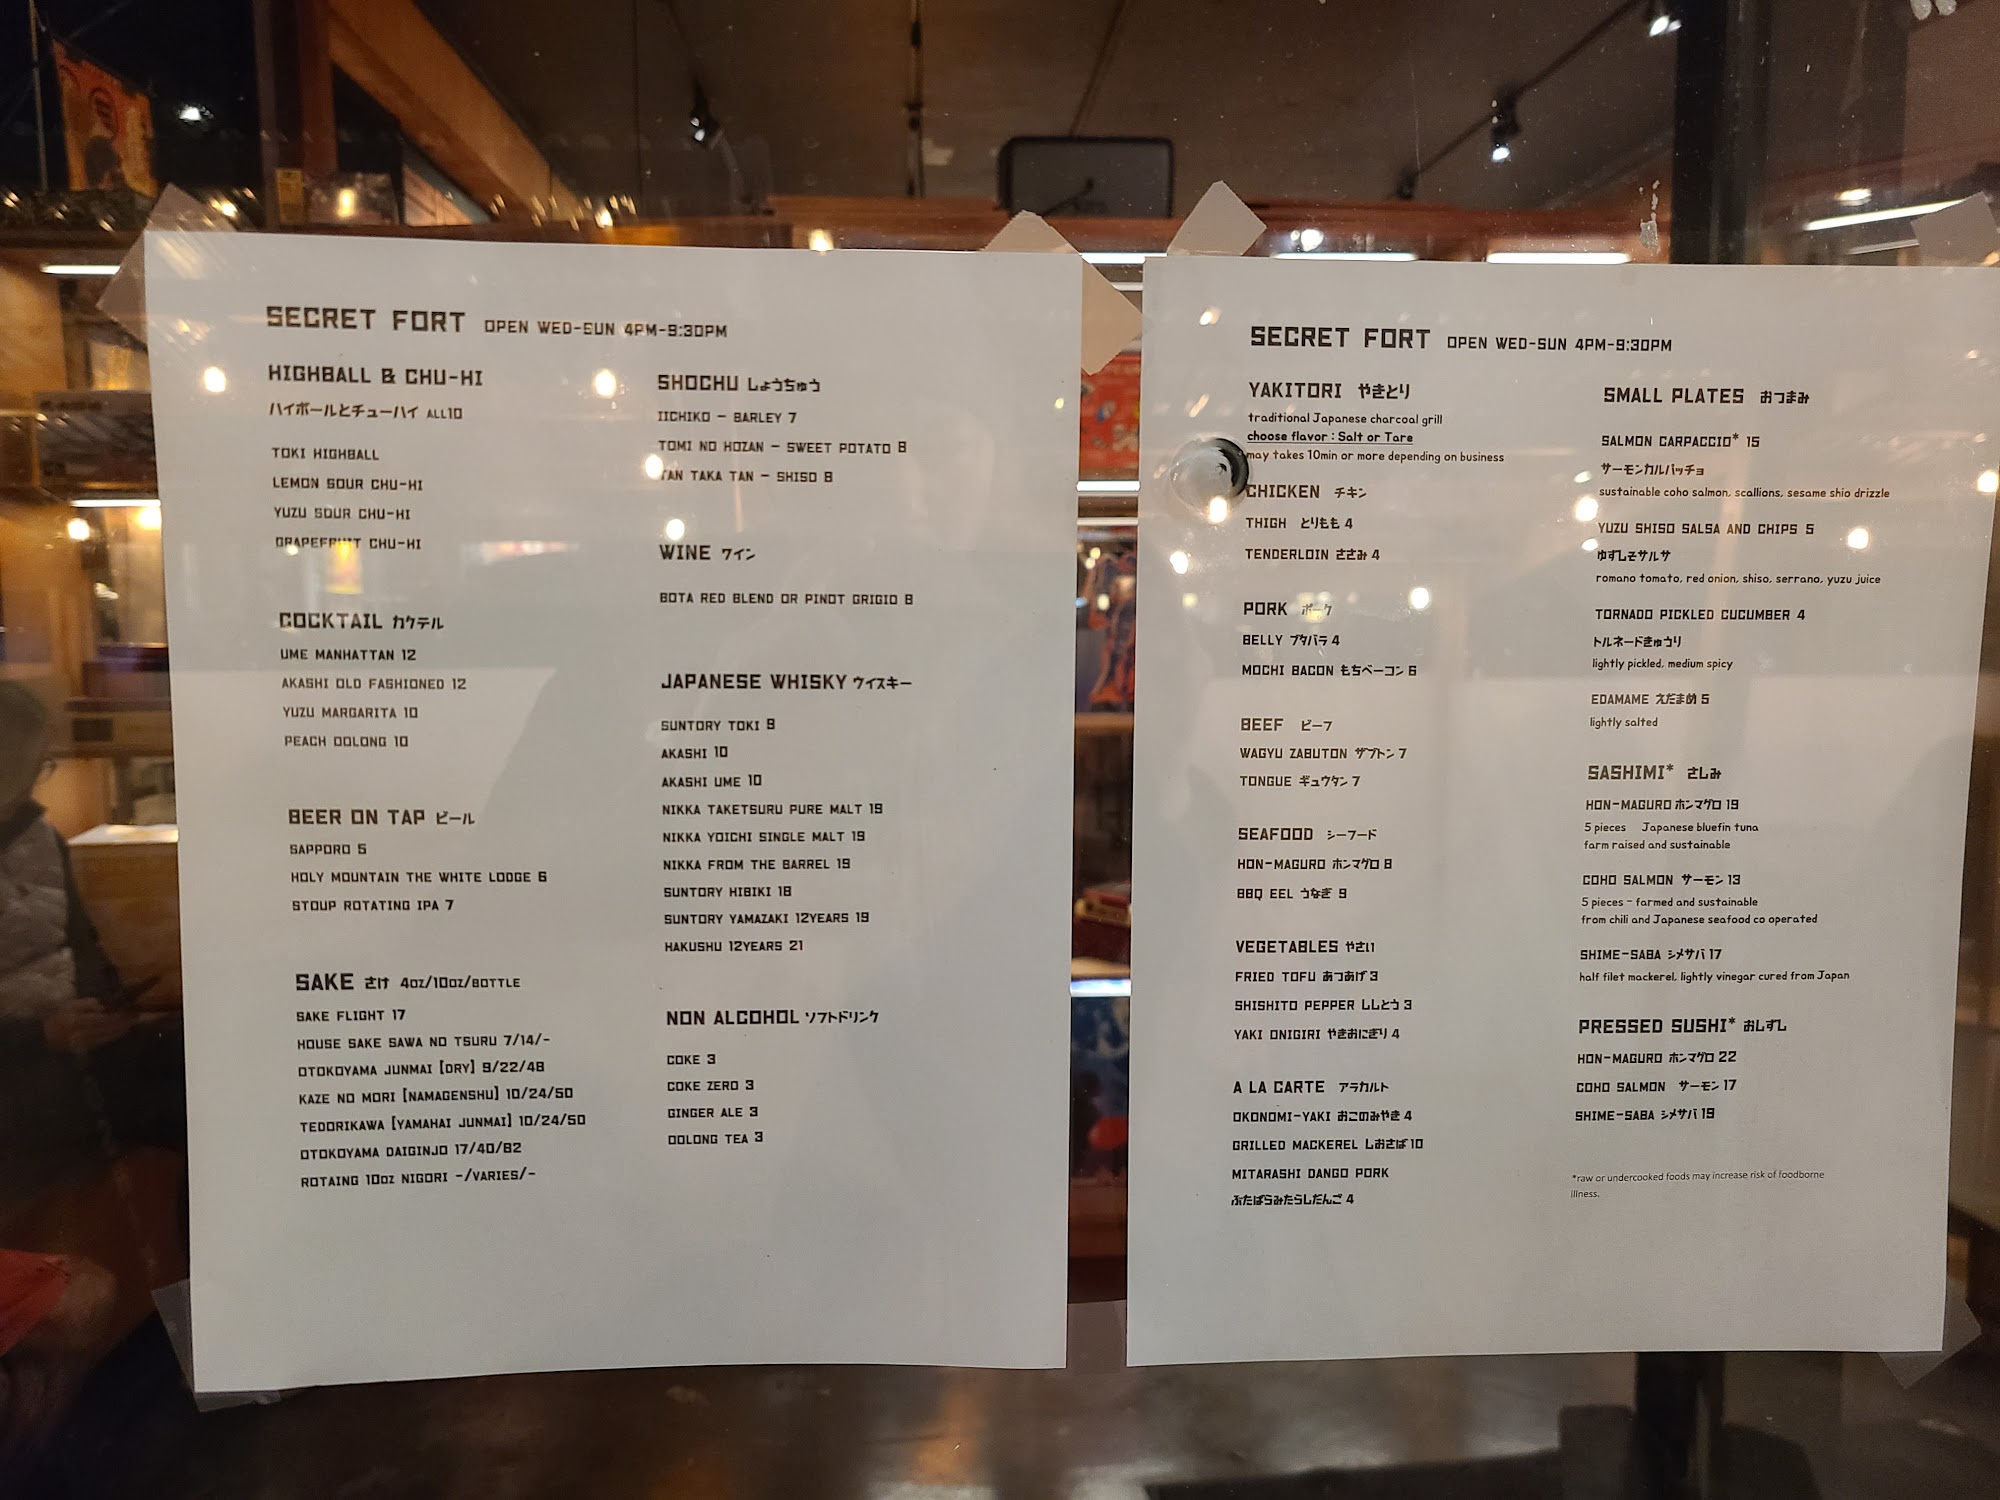 SECRET FORT OPEN WED-SUN 4PM-9:30PM
HIGHBALL & CHU-HI
ハイボールとチューハイ ALL10
TOKI HIGHBALL
LEMON SOUR CHU-HI
YUZU SOUR CHU-HI
GRAPEFRUIT CHU-HI
COCKTAIL カクテル
UME MANHATTAN 12
AKASHI OLD FASHIONED 12
YUZU MARGARITA 10
PEACH OOLONG 10
BEER ON TAP ビール
SAPPORO 5
HOLY MOUNTAIN THE WHITE LODGE 6
STOUP ROTATING IPA 7
SAKE さけ 4OZ/10OZ/BOTTLE
SAKE FLIGHT 17
HOUSE SAKE SAWA NO TSURU 7/14/-
OTOKOYAMA JUNMAI [DRY] 9/22/48
KAZE NO MORI [NAMAGENSHU] 10/24/50
TEDORIKAWA [YAMAHAI JUNMAI] 10/24/50
OTOKOYAMA DAIGINJO 17/40/82
ROTAING 10OZ NIGORI -/VARIES/-
SHOCHU しょうちゅう
IICHIKO - BARLEY 7
TOMI NO HOZAN - SWEET POTATO 8
TAN TAKA TAN - SHISO 8
WINE ワイン
BOTA RED BLEND OR PINOT GRIGIO 8
JAPANESE WHISKY ウイスキー
SUNTORY TOKI 9
AKASHI 10
AKASHI UME 10
NIKKA TAKETSURU PURE MALT 19
NIKKA YOICHI SINGLE MALT 19
NIKKA FROM THE BARREL 19
SUNTORY HIBIKI 18
SUNTORY YAMAZAKI 12YEARS 19
HAKUSHU 12YEARS 21
NON ALCOHOL ソフトドリンク
COKE 3
COKE ZERO 3
GINGER ALE 3
OOLONG TEA 3
SECRET FORT OPEN WED-SUN 4PM-9:30PM
YAKITORI やきとり
traditional Japanese charcoal grill
choose flavor : Salt or Tare
may takes 10min or more depending on business
CHICKEN チキン
THIGH とりもも 4
TENDERLOIN ささみ 4
PORK ポーク
BELLY ブタバラ 4
MOCHI BACON もちベーコン 6
BEEF ビーフ
WAGYU ZABUTON ザブトン 7
TONGUE ギュウタン 7
SEAFOOD シーフード
HON-MAGURO ホンマグロ 8
BBQ EEL うなぎ 9
VEGETABLES やさい
FRIED TOFU あつあげ 3
SHISHITO PEPPER ししとう 3
YAKI ONIGIRI やきおにぎり 4
A LA CARTE アラカルト
OKONOMI-YAKI おこのみやき 4
GRILLED MACKEREL しおさば 10
MITARASHI DANGO PORK
ぶたばらみたらしだんご 4
SMALL PLATES おつまみ
SALMON CARPACCIO* 15
サーモンカルパッチョ
sustainable coho salmon, scallions, sesame shio drizzle
YUZU SHISO SALSA AND CHIPS 5
ゆずしそサルサ
romano tomato, red onion, shiso, serrano, yuzu juice
TORNADO PICKLED CUCUMBER 4
トルネードきゅうり
lightly pickled, medium spicy
EDAMAME えだまめ 5
lightly salted
SASHIMI* さしみ
HON-MAGURO ホンマグロ 19
5 pieces Japanese bluefin tuna
farm raised and sustainable
COHO SALMON サーモン 13
5 pieces - farmed and sustainable
from chili and Japanese seafood co operated
SHIME-SABA シメサバ 17
half filet mackerel, lightly vinegar cured from Japan
PRESSED SUSHI* おしずし
HON-MAGURO ホンマグロ 22
COHO SALMON サーモン 17
SHIME-SABA シメサバ 19
*raw or undercooked foods may increase risk of foodborne
illness.